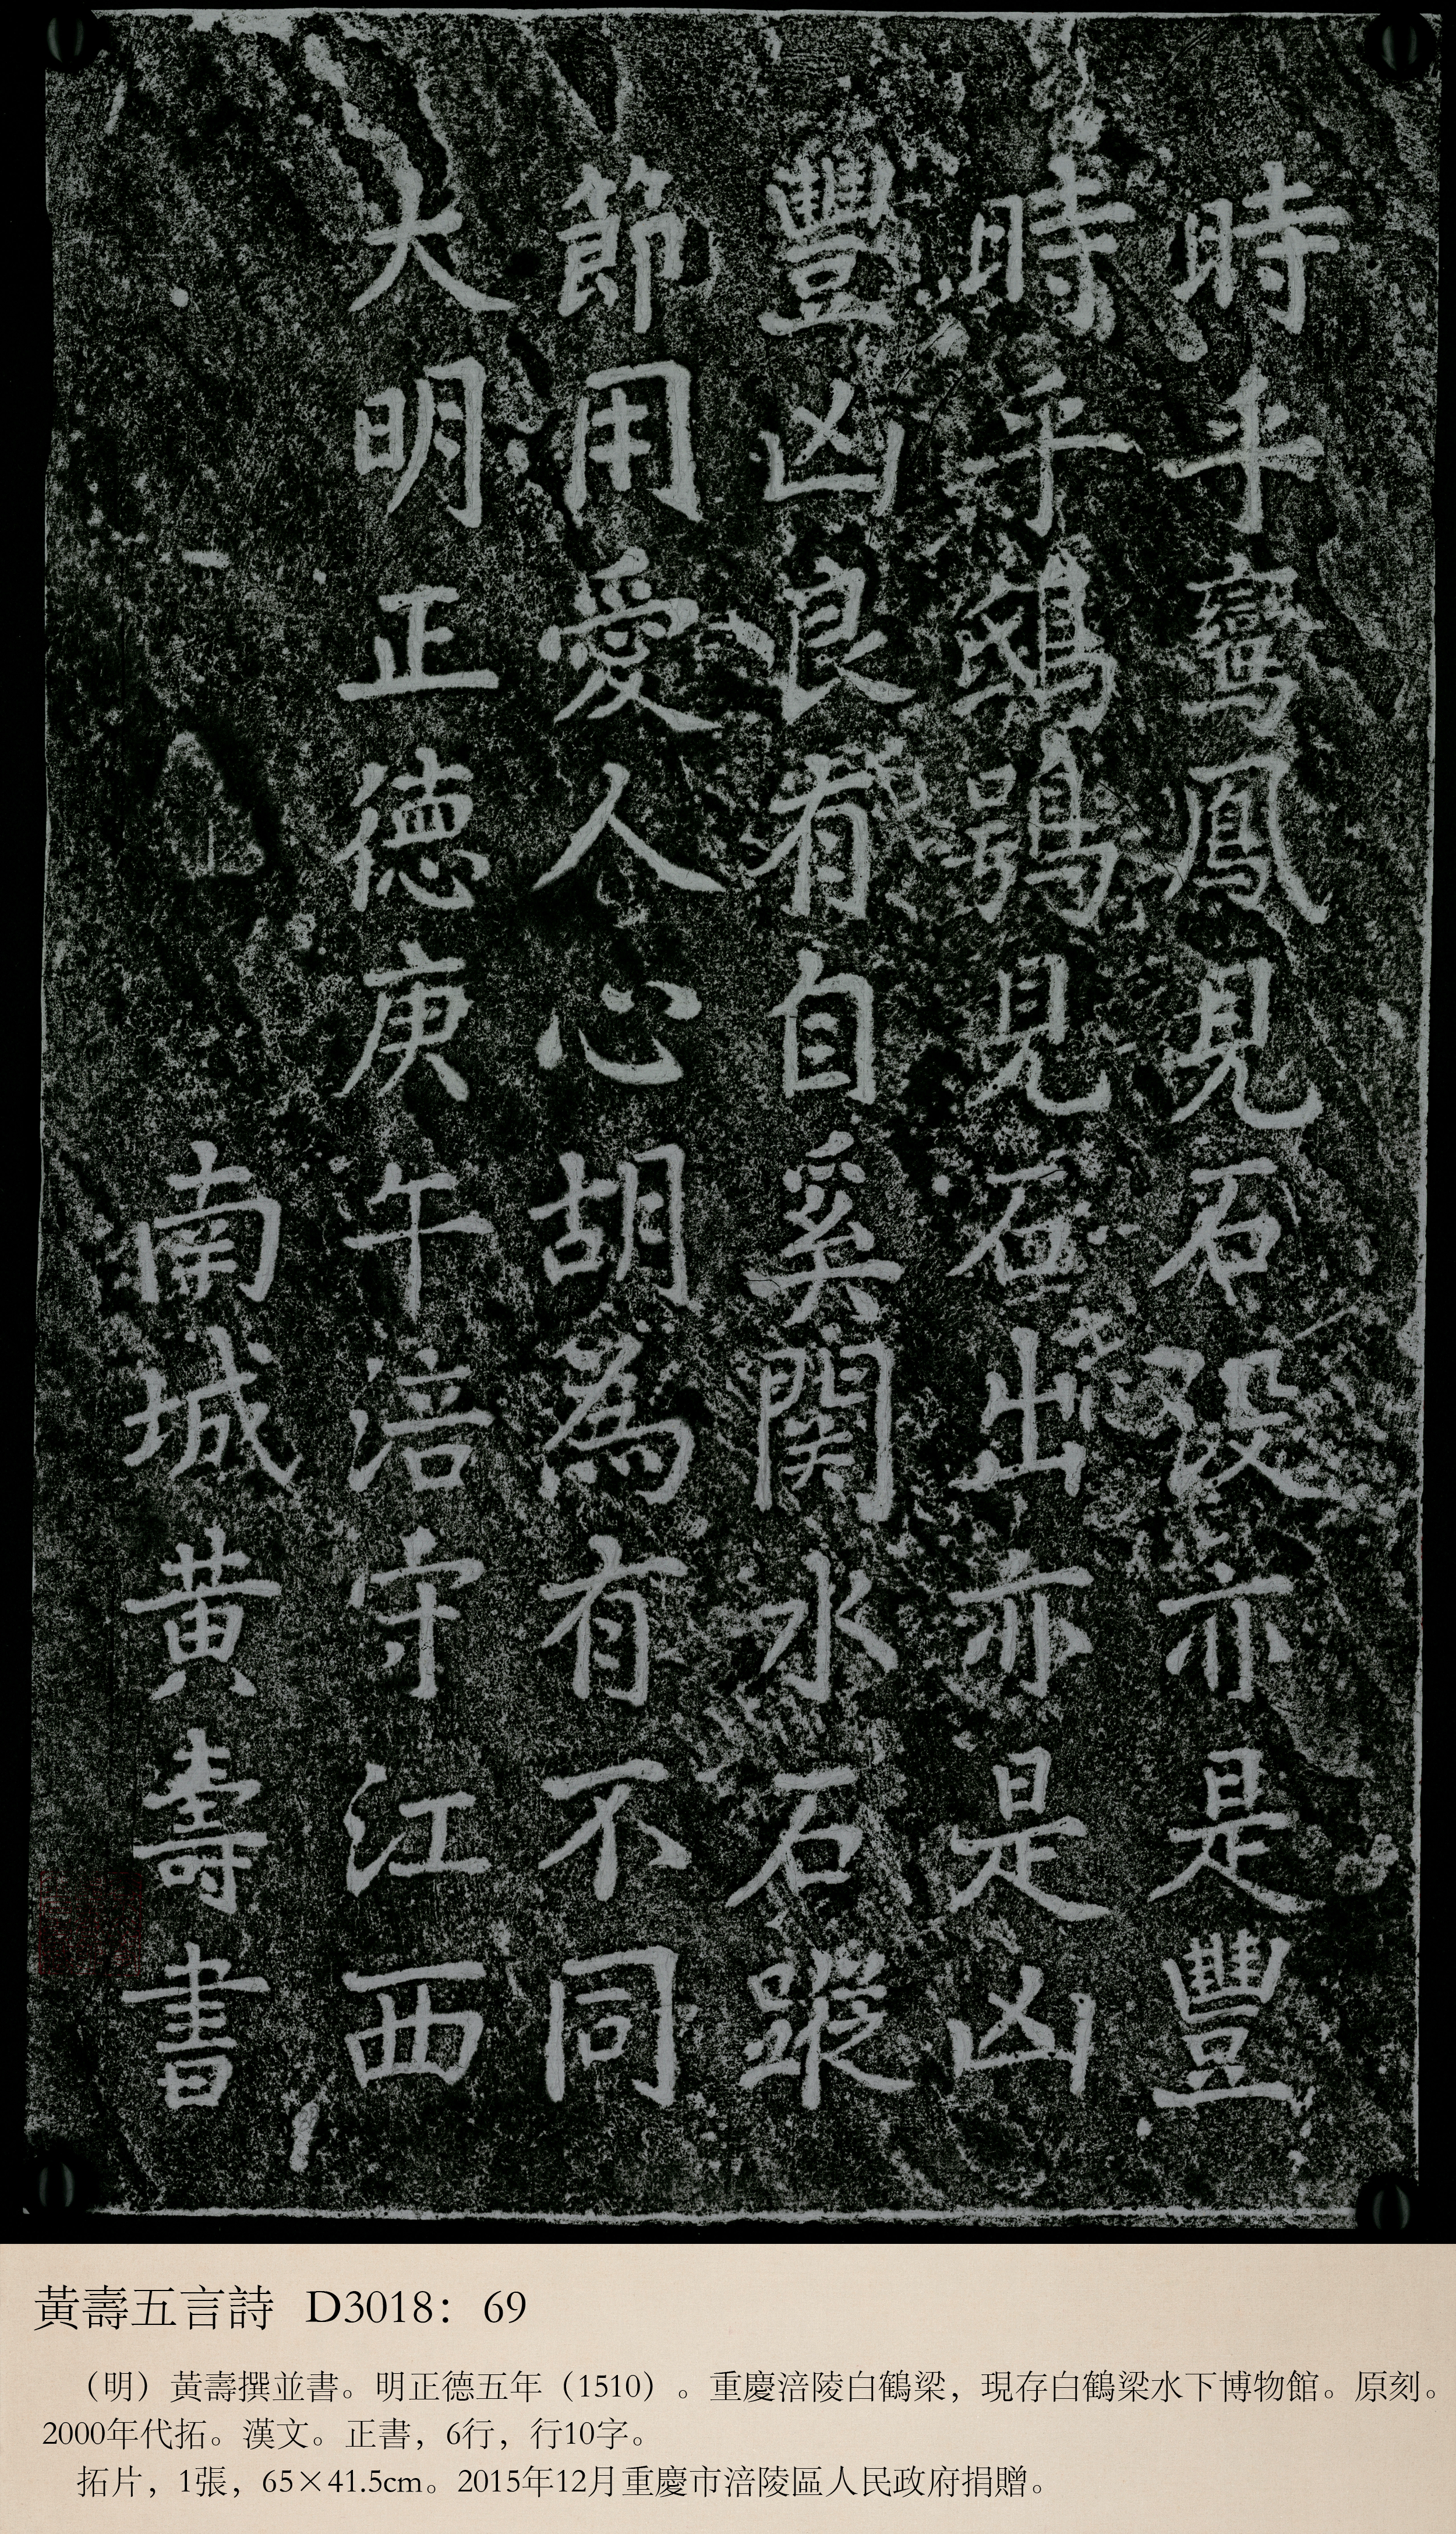 時乎鸞鳳見石没亦是豐
時乎鴟鴞見石出亦是凶
豐凶良有自奚関水石蹤
節用愛人心胡為有不同
大明正德庚午涪守江西
南城黃壽書
黃壽五言詩 D3018：69
（明）黃壽撰並書。明正德五年（1510）。重慶涪陵白鶴梁，現存白鶴梁水下博物館。原刻。
2000年代拓。漢文。正書，6行，行10字。
拓片，1張，65×41.5cm。2015年12月重慶市涪陵區人民政府捐贈。